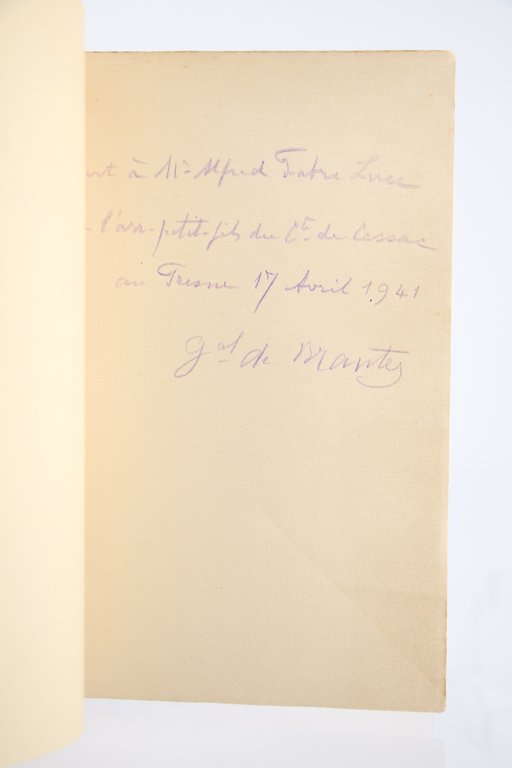 à Mr Alfred Fabre Luce
l'arr-petit-fils du Cte de Cessac
au Fresne 17 Avril 1941
Gal de Brantes